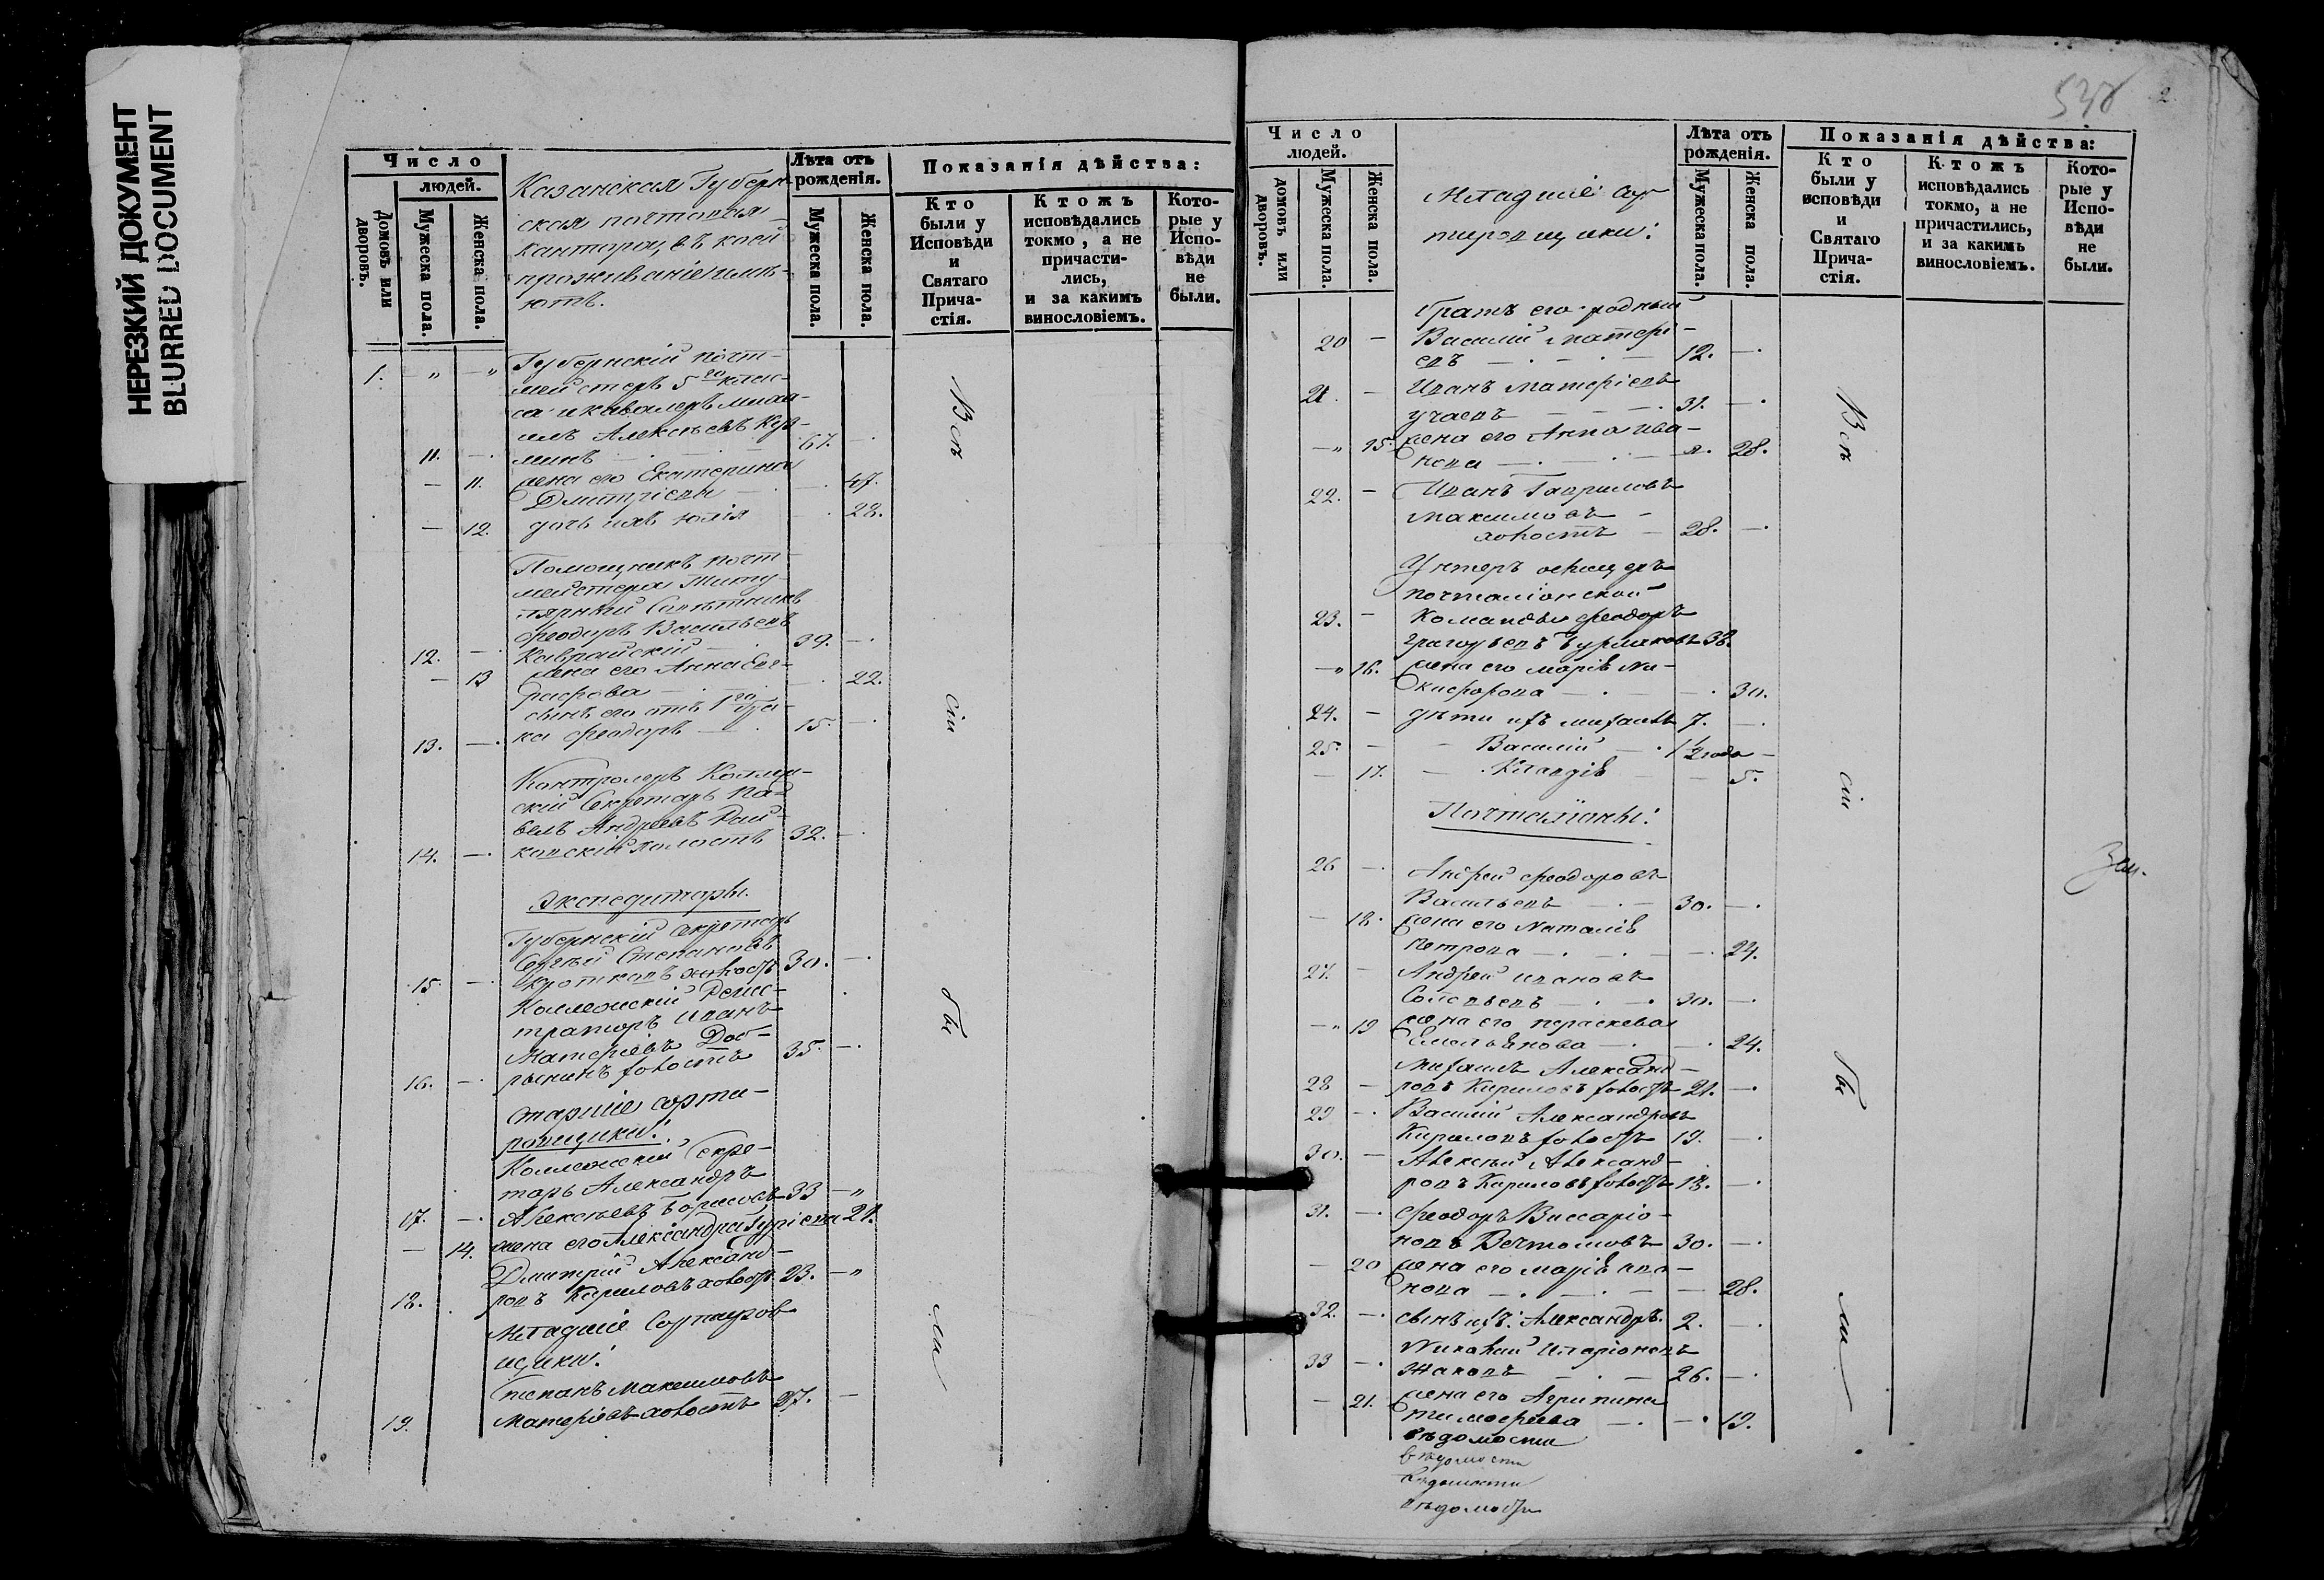 НЕРЕЗКИЙ ДОКУМЕНТ
BLURRED DOCUMENT
Число
людей.
Домовъ или дворовъ.
Мужеска пола.
Женска пола.
Казанская Губерн-
ская почтовая
кантора, въ коей
проживаніе имѣ-
ютъ.
Лѣта отъ
рожденія.
Мужеска пола.
Женска пола.
Показанія дѣйства:
Кто
были у
Исповѣди
и
Святаго
Прича-
стія.
Ктожъ
исповѣдались
токмо, а не
причасти-
лись,
и за какимъ
винословіемъ.
Кото-
рые у
Испо-
вѣди
не
были.
1. " — " Губернскій почт-
мейстеръ 5го клас-
са и кавалеръ Миха-
илъ Алексѣевъ
11. — минъ 67. —
— 11. жена его Екатерина
Дмитріева — 47.
— 12. дочь ихъ Юлія 28.
Помощникъ почт-
мейстера Титу-
лярный Совѣтникъ
Феодоръ Васильевъ
12. — Каврайскій 39. —
— 13 жена его Анна Евг-
рафова — 22.
сынъ его отъ 1го бра-
13. — ка Феодоръ 15. —
Контролеръ Коллеж-
скій Секретарь Па-
велъ Андреевъ Рай-
14. — ковскій холостъ 32. —
Экспедиторы.
Губернскій секретарь
Сергѣй Степановъ
15 — Кротковъ холостъ 30. —
Коллежскій Регис-
траторъ Иванъ
Матвѣевъ Доб-
16. — рынинъ холостъ 35. —
Старшіе сорти-
ровщики:
Коллежскій Секре-
тарь Александръ
17. — Алексѣевъ Борисовъ 33 — "
— 14. жена его Александра Гурьева 21.
Дмитрій Александ-
18. ровъ Кириловъ холостъ 23. — "
Младшіе Сортиров
щики:
Степанъ Максимовъ
19. Матвѣевъ холостъ 27. —
Всѣ
сіи
бы
ли
538
2.
Число
людей.
домовъ или дворовъ.
Мужеска пола.
Женска пола.
Младшіе сор
тировщики:
Лѣта отъ
рожденія.
Мужеска пола.
Женска пола.
Показанія дѣйства:
Кто
были у
исповѣди
и
Святаго
Прича-
стія.
Ктожъ
исповѣдались
токмо, а не
причастились,
и за какимъ
винословіемъ.
Кото-
рые у
Испо-
вѣди
не
были.
братъ его родный
20 — Василій Матвѣ-
евъ 12. —
21. — Иванъ Матвѣевъ
31. —
— " 15. жена его Анна Ива-
нова — 28.
22. — Иванъ Гавриловъ
Максимовъ
холостъ — 28. —
Унтеръ офицеръ
почталіонской
23. — команды Феодоръ
Григорьевъ 38.
— " 16. жена его Марія Ни-
кифорова — 30.
24. — дѣти ихъ Михаилъ 7. —
25. — Василій 1½ года —
— 17. — Клавдія — 5.
Почталіоны:
26 — Андрей Феодоровъ
Васильевъ — 30. —
— 18. жена его Наталія
Петрова — 24.
27. — Андрей Ивановъ
30. —
— " 19 жена его Параскева
Емельянова — 24.
Михаилъ Александ-
28 — ровъ Кириловъ холостъ 21. —
29 — Василій Александровъ
Кириловъ холостъ 19. —
30. — Алексѣй Александ-
ровъ Кириловъ холостъ 18. —
31. — Феодоръ Виссаріо-
новъ Вечтомовъ 30. —
— 20 жена его Марія Ива-
нова — 28.
32. — сынъ ихъ: Александръ. 2. —
33 — Николай Иларіоновъ
Жаковъ — 26. —
— 21. жена его Агрипина
Тимофеева — 19.
вѣдомости
вѣдомости
вѣдомости
вѣдомости
Всѣ
сіи
бы
ли